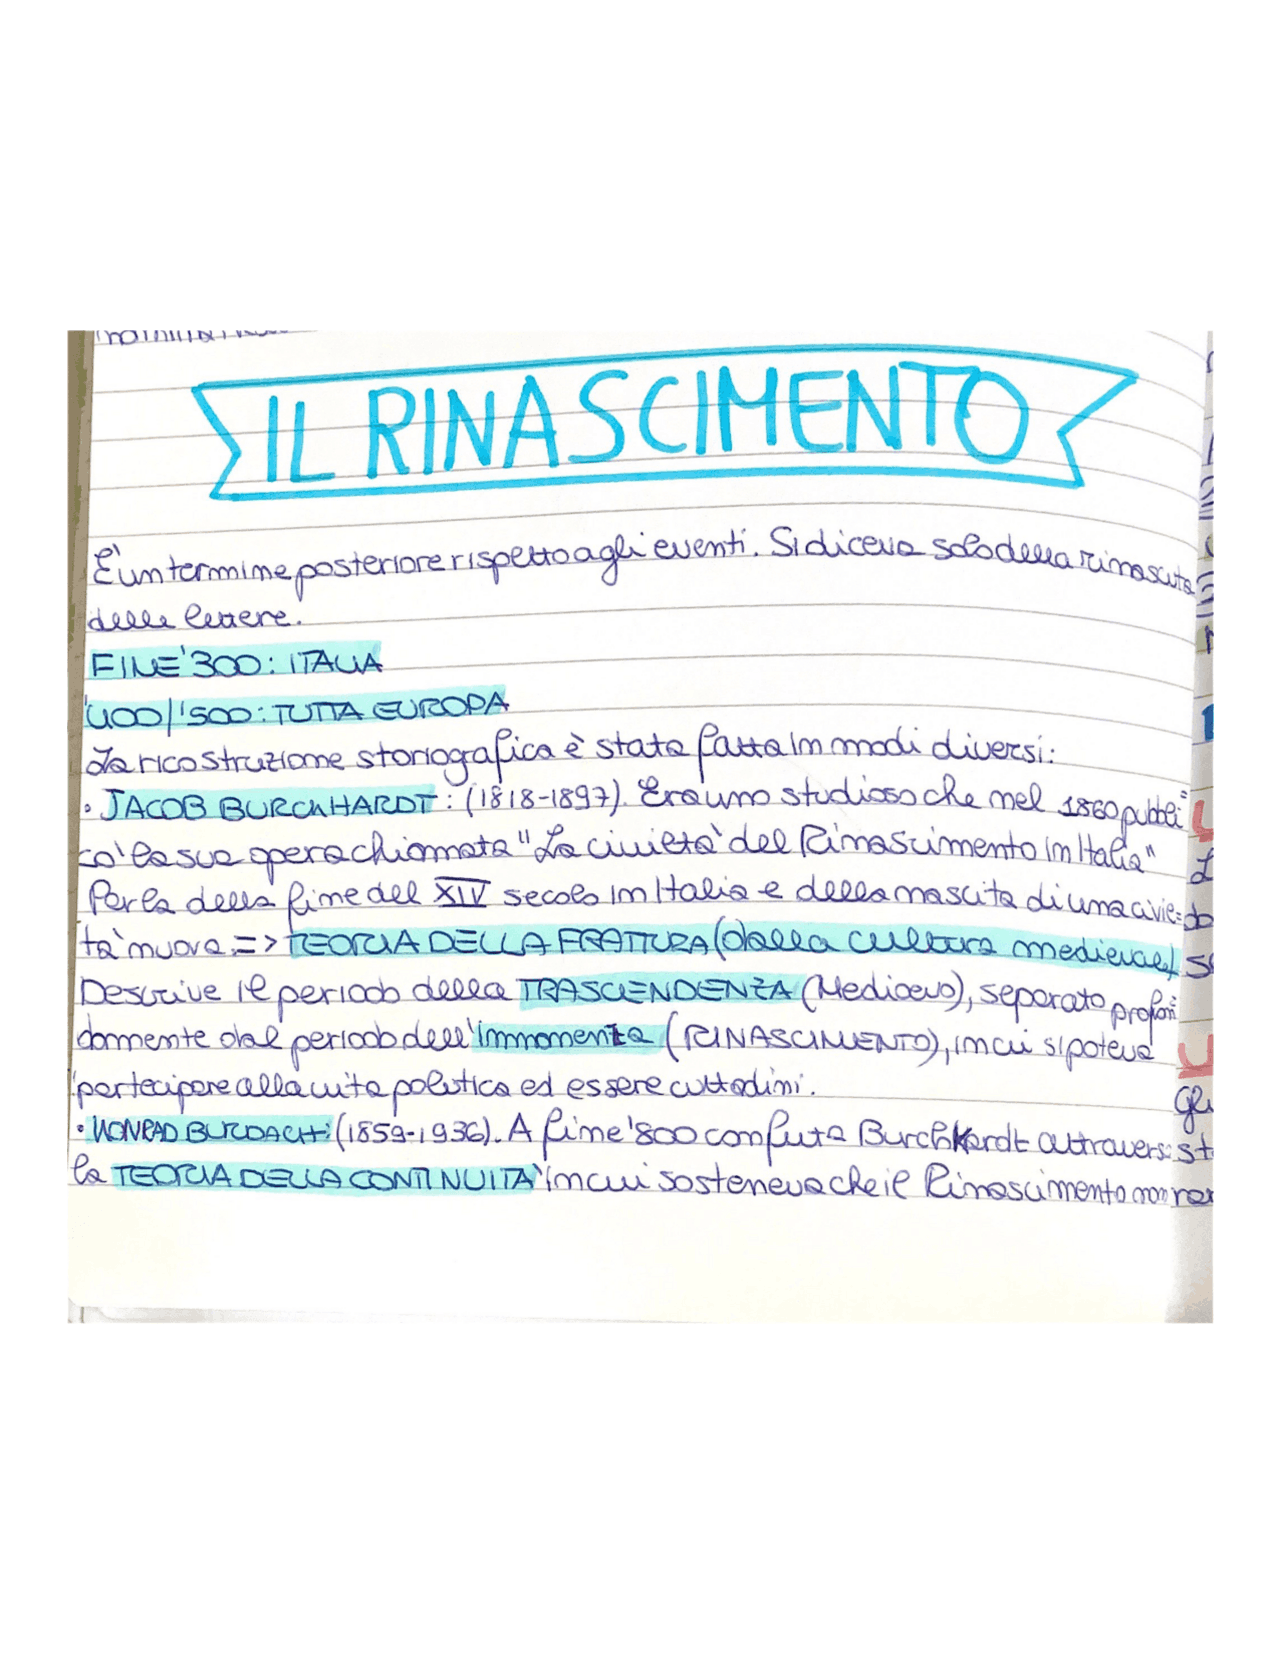 IL RINASCIMENTO
È un termine posteriore rispetto agli eventi. Si diceva solo della rinascita
delle lettere.
FINE '300: ITALIA
'400/'500: TUTTA EUROPA
La ricostruzione storiografica è stata fatta in modi diversi:
• JACOB BURCKHARDT: (1818-1897). Era uno studioso che nel 1860 pubbli=
cò la sua opera chiamata "La civiltà del Rinascimento in Italia"
Parla della fine del XIV secolo in Italia e della nascita di una civil=
tà nuova => TEORIA DELLA FRATTURA (dalla cultura medievale)
Descrive il periodo della TRASCENDENZA (Medioevo), separato profon=
damente dal periodo dell'immanenza (RINASCIMENTO), in cui si poteva
partecipare alla vita politica ed essere cittadini.
• KONRAD BURDACH: (1859-1936). A fine '800 confuta Burchkardt attraverso
la TEORIA DELLA CONTINUITÀ in cui sosteneva che il Rinascimento non